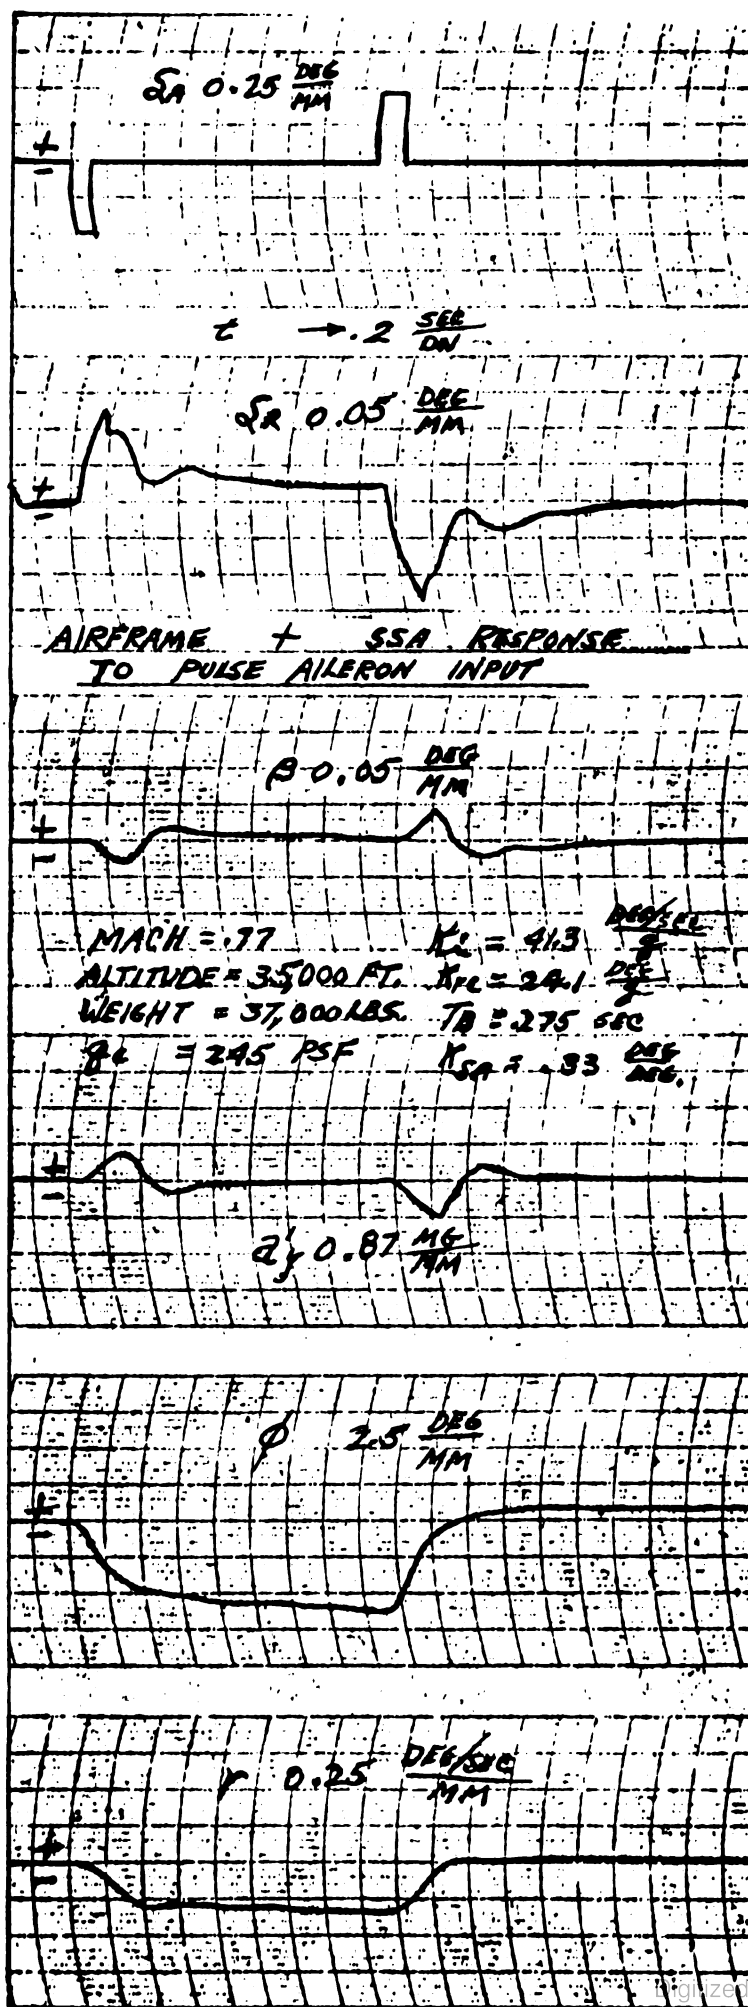 + δA 0.25 DEG/MM
−
t → .2 SEC/DIV
+ δR 0.05 DEG/MM
−
AIRFRAME + SSA RESPONSE
TO PULSE AILERON INPUT
β 0.05 DEG/MM
+
−
MACH = .77
ALTITUDE = 35,000 FT.
WEIGHT = 37,000 LBS.
qc = 245 PSF
= 41.3 DEG/SEC/g
= 24.1 DEG/g
TB = .275 SEC
KSA = .33 DEG/DEG.
+
−
a'y 0.87 MG/MM
φ 2.5 DEG/MM
+
−
r 0.25 DEG/SEC/MM
+
−
Digitized